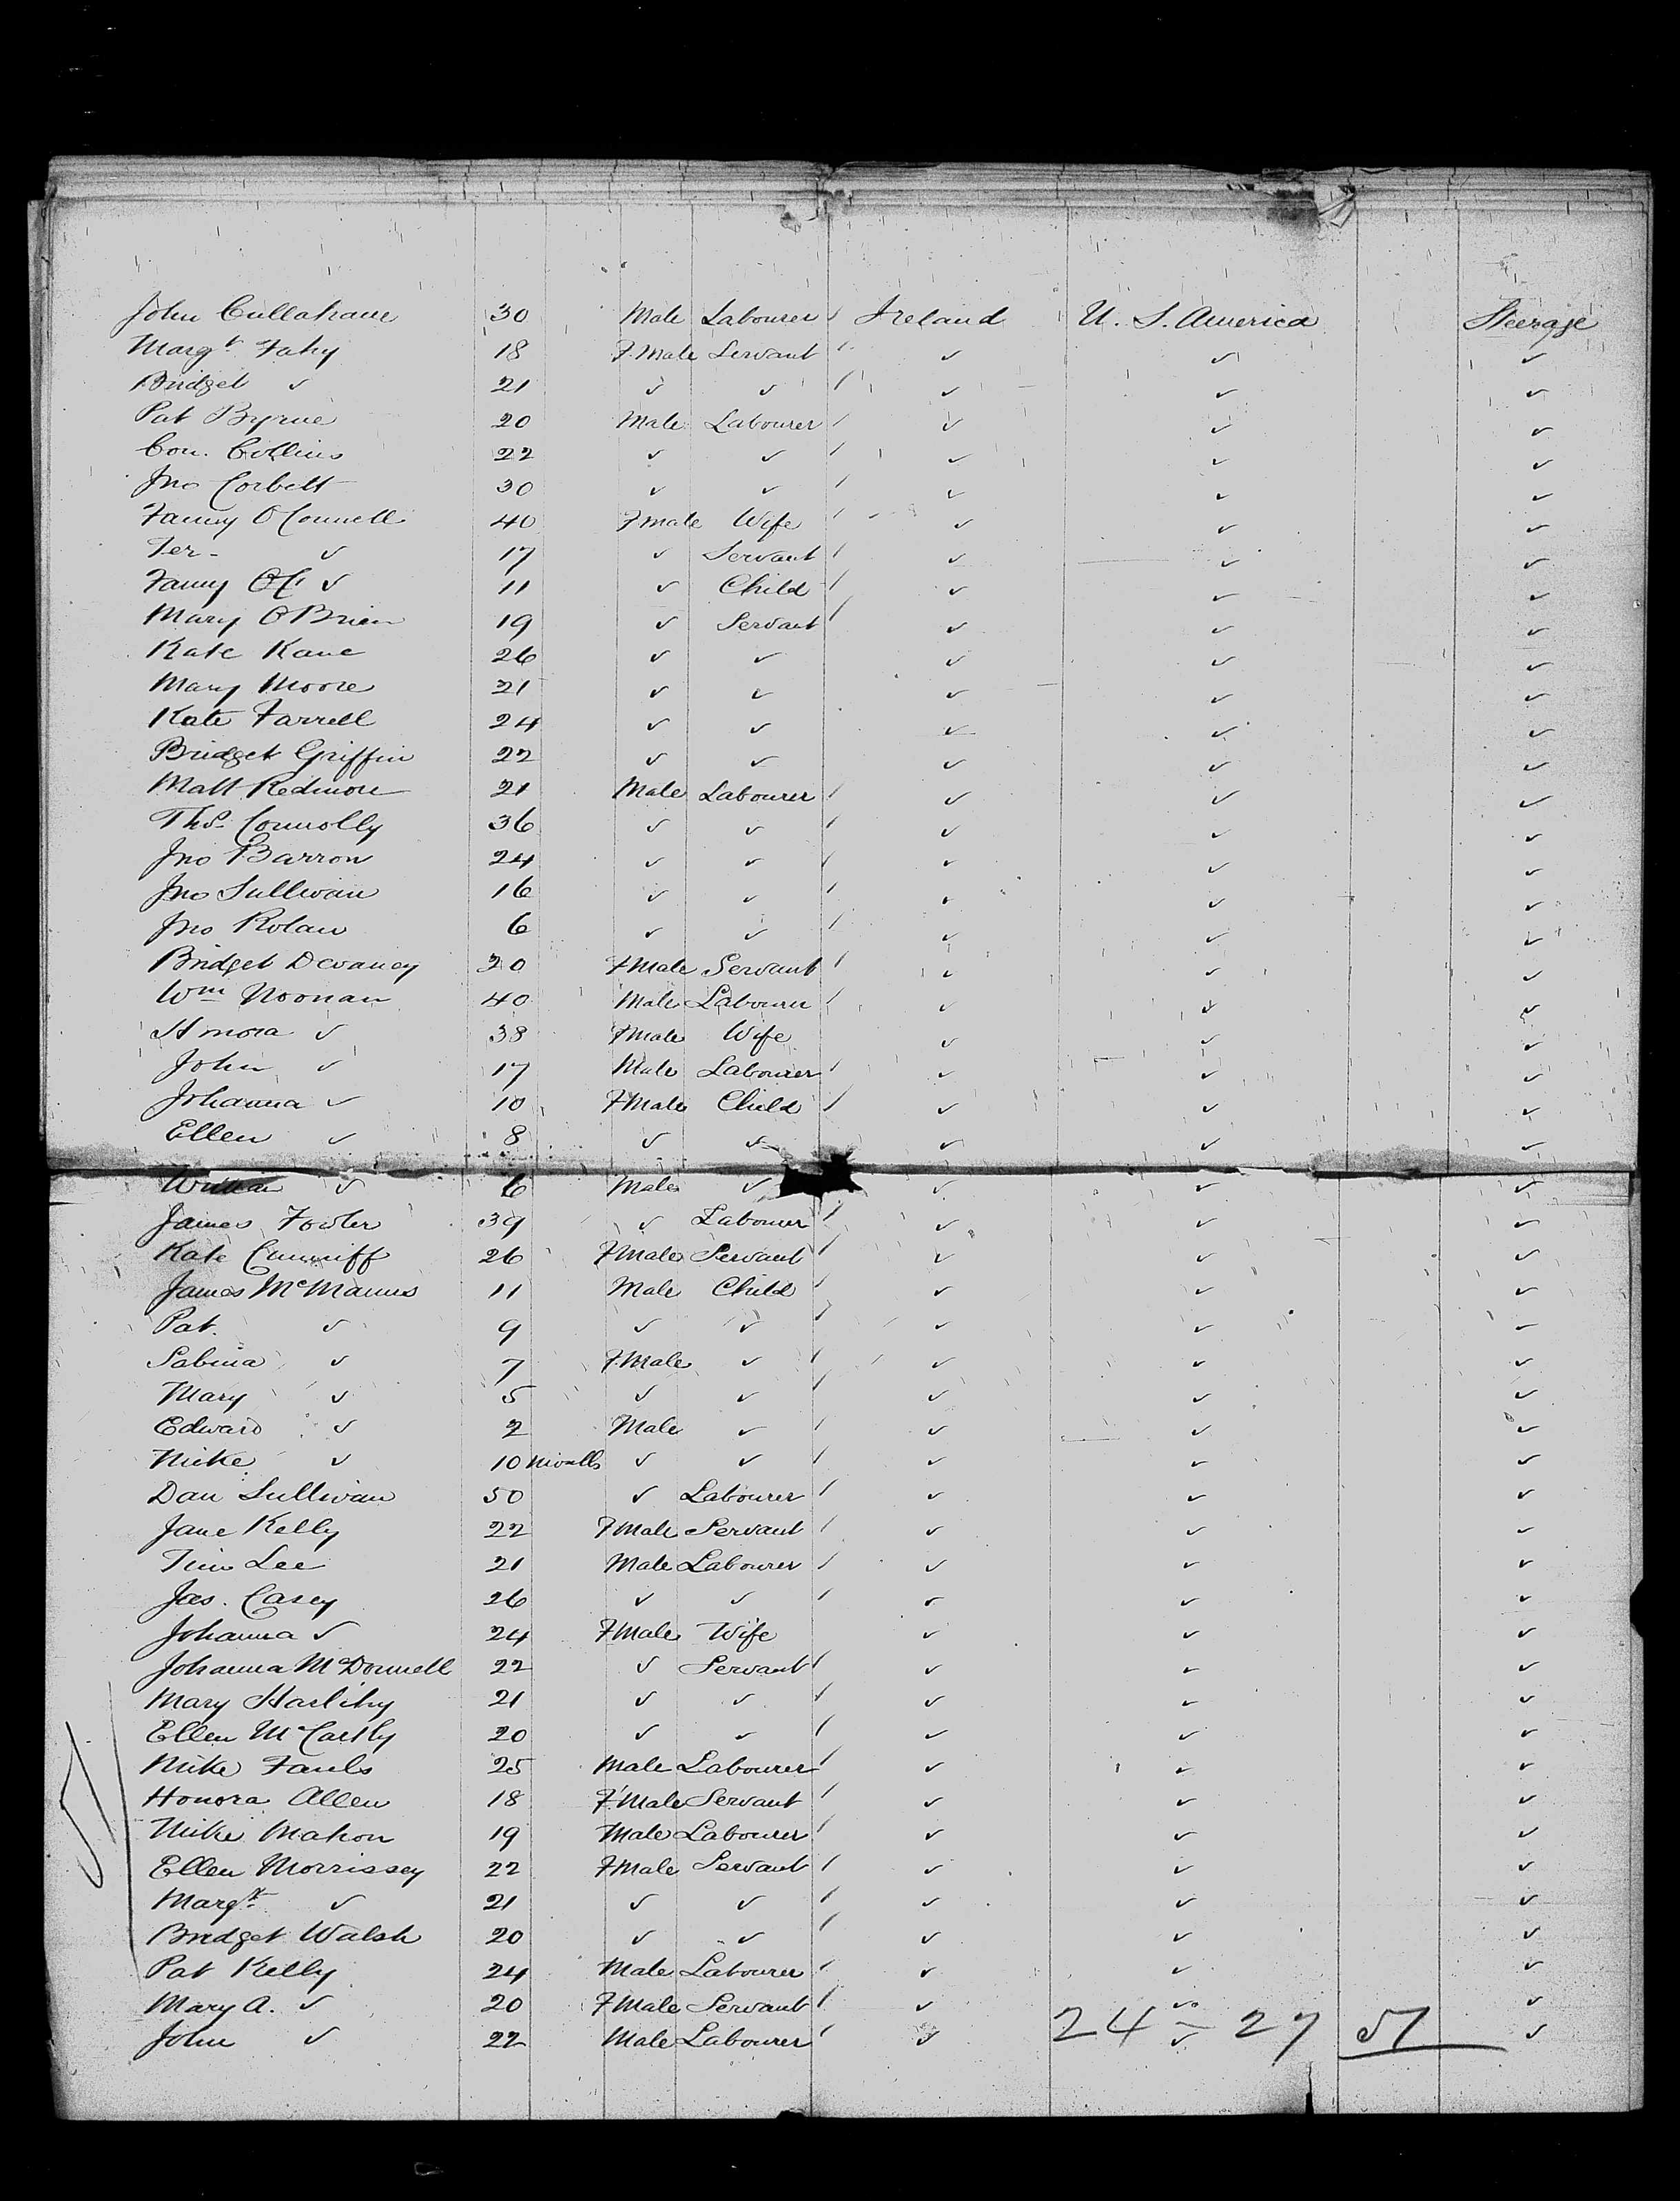 John Cullahane 30 Male Labourer Ireland U. S. America Steerage
Margt Fahy 18 F.Male Servant ✓ ✓ ✓
Bridget ✓ 21 ✓ ✓ ✓ ✓ ✓
Pat Byrne 20 Male Labourer ✓ ✓ ✓
Con. Collins 22 ✓ ✓ ✓ ✓ ✓
Jno Corbett 30 ✓ ✓ ✓ ✓ ✓
Fanny O Connell 40 Fmale Wife ✓ ✓ ✓
Ter- ✓ 17 ✓ Servant ✓ ✓ ✓
Fanny OC ✓ 11 ✓ Child ✓ ✓ ✓
Mary O Brien 19 ✓ Servant ✓ ✓ ✓
Kate Kane 26 ✓ ✓ ✓ ✓ ✓
Mary Moore 21 ✓ ✓ ✓ ✓ ✓
Kate Farrell 24 ✓ ✓ ✓ ✓ ✓
Bridget Griffin 22 ✓ ✓ ✓ ✓ ✓
Matt Redmore 21 Male Labourer ✓ ✓ ✓
Thos Connolly 36 ✓ ✓ ✓ ✓ ✓
Jno Barron 24 ✓ ✓ ✓ ✓ ✓
Jno Sullivan 16 ✓ ✓ ✓ ✓ ✓
Jno Rolan 6 ✓ ✓ ✓ ✓ ✓
Bridget Devaney 20 FMale Servant ✓ ✓ ✓
Wm Noonan 40 Male Labourer ✓ ✓ ✓
Hnora ✓ 38 FMale Wife ✓ ✓ ✓
John ✓ 17 Male Labourer ✓ ✓ ✓
Johanna ✓ 10 FMale Child ✓ ✓ ✓
Ellen ✓ 8 ✓ ✓ ✓ ✓ ✓
William ✓ 6 Male ✓ ✓ ✓ ✓
James Fowler 39 ✓ Labourer ✓ ✓ ✓
Kate Cunniff 26 FMale Servant ✓ ✓ ✓
James McManus 11 Male Child ✓ ✓ ✓
Pat. ✓ 9 ✓ ✓ ✓ ✓ ✓
Sabina ✓ 7 FMale ✓ ✓ ✓ ✓
Mary ✓ 5 ✓ ✓ ✓ ✓ ✓
Edward ✓ 2 Male ✓ ✓ ✓ ✓
Mike ✓ 10 ✓ ✓ ✓ ✓ ✓
Dan Sullivan 50 ✓ Labourer ✓ ✓ ✓
Jane Kelly 22 FMale Servant ✓ ✓ ✓
Tim Lee 21 Male Labourer ✓ ✓ ✓
Jas. Casey 26 ✓ ✓ ✓ ✓ ✓
Johanna ✓ 24 FMale Wife ✓ ✓ ✓
Johanna McDonnell 22 ✓ Servant ✓ ✓ ✓
Mary Harlihy 21 ✓ ✓ ✓ ✓ ✓
Ellen McCarthy 20 ✓ ✓ ✓ ✓ ✓
Mike 25 Male Labourer ✓ ✓ ✓
Honora Allen 18 FMale Servant ✓ ✓ ✓
Mike Mahon 19 Male Labourer ✓ ✓ ✓
Ellen Morrissey 22 FMale Servant ✓ ✓ ✓
Margt ✓ 21 ✓ ✓ ✓ ✓ ✓
Bridget Walsh 20 ✓ ✓ ✓ ✓ ✓
Pat Kelly 24 Male Labourer ✓ ✓ ✓
Mary A. ✓ 20 FMale Servant ✓ ✓ ✓
John ✓ 22 Male Labourer ✓ ✓ ✓
24 - 27 51